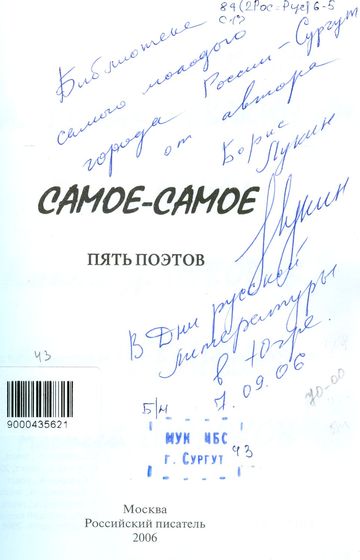 84(2Рос=Рус)6-5
С 17
Библиотеке
самого молодого
города России - Сургут
от автора
Борис
Лукин
САМОЕ-САМОЕ
Лукин
ПЯТЬ ПОЭТОВ
В Дни русской
литературы
в Югре.
7.09.06
ч3
9000435621
Б/н
70-00
МУК ЦБС
г. СУРГУТ
ч3
Москва
Российский писатель
2006